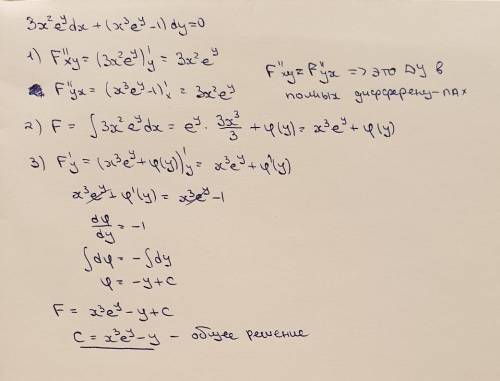 3x²eʸdx + (x³eʸ-1)dy=0
1) F''xy = (3x²eʸ)'y = 3x²eʸ
F''yx = (x³eʸ-1)'x = 3x²eʸ
F''xy = F''yx => это ДУ в
полных дифференц-лах
2) F = ∫3x²eʸdx = eʸ · 3x³/3 + φ(y) = x³eʸ + φ(y)
3) F'y = (x³eʸ + φ(y))'y = x³eʸ + φ'(y)
x³eʸ + φ'(y) = x³eʸ - 1
dφ/dy = -1
∫dφ = -∫dy
φ = -y + C
F = x³eʸ - y + C
C = x³eʸ - y - общее решение